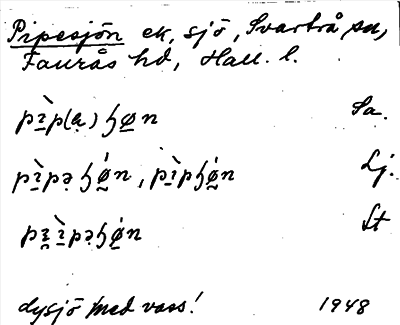 Pipesjön ek, sjö, Svartrå sn,
Faurås hd, Hall. l.
pì̱p(ə̣) ɧø̱n Sa.
pì̱pə̣ ɧǿ̱n, pì̱pɧǿ̱n Lj.
pì̱pə̣ɧǿ̱n St
dysjö med vass! 1948